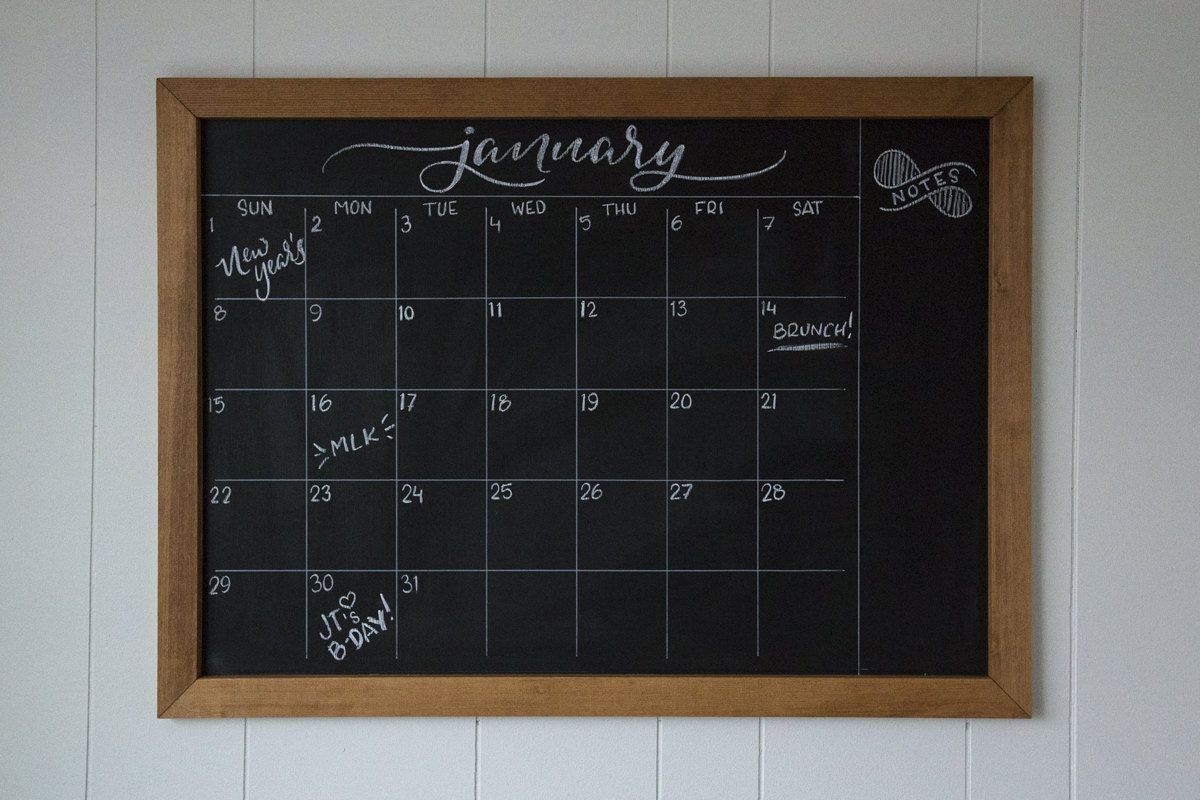 january
NOTES
SUN MON TUE WED THU FRI SAT
1 2 3 4 5 6 7
New
year's
8 9 10 11 12 13 14
BRUNCH!
15 16 17 18 19 20 21
MLK
22 23 24 25 26 27 28
29 30 31
JT's
B-DAY!